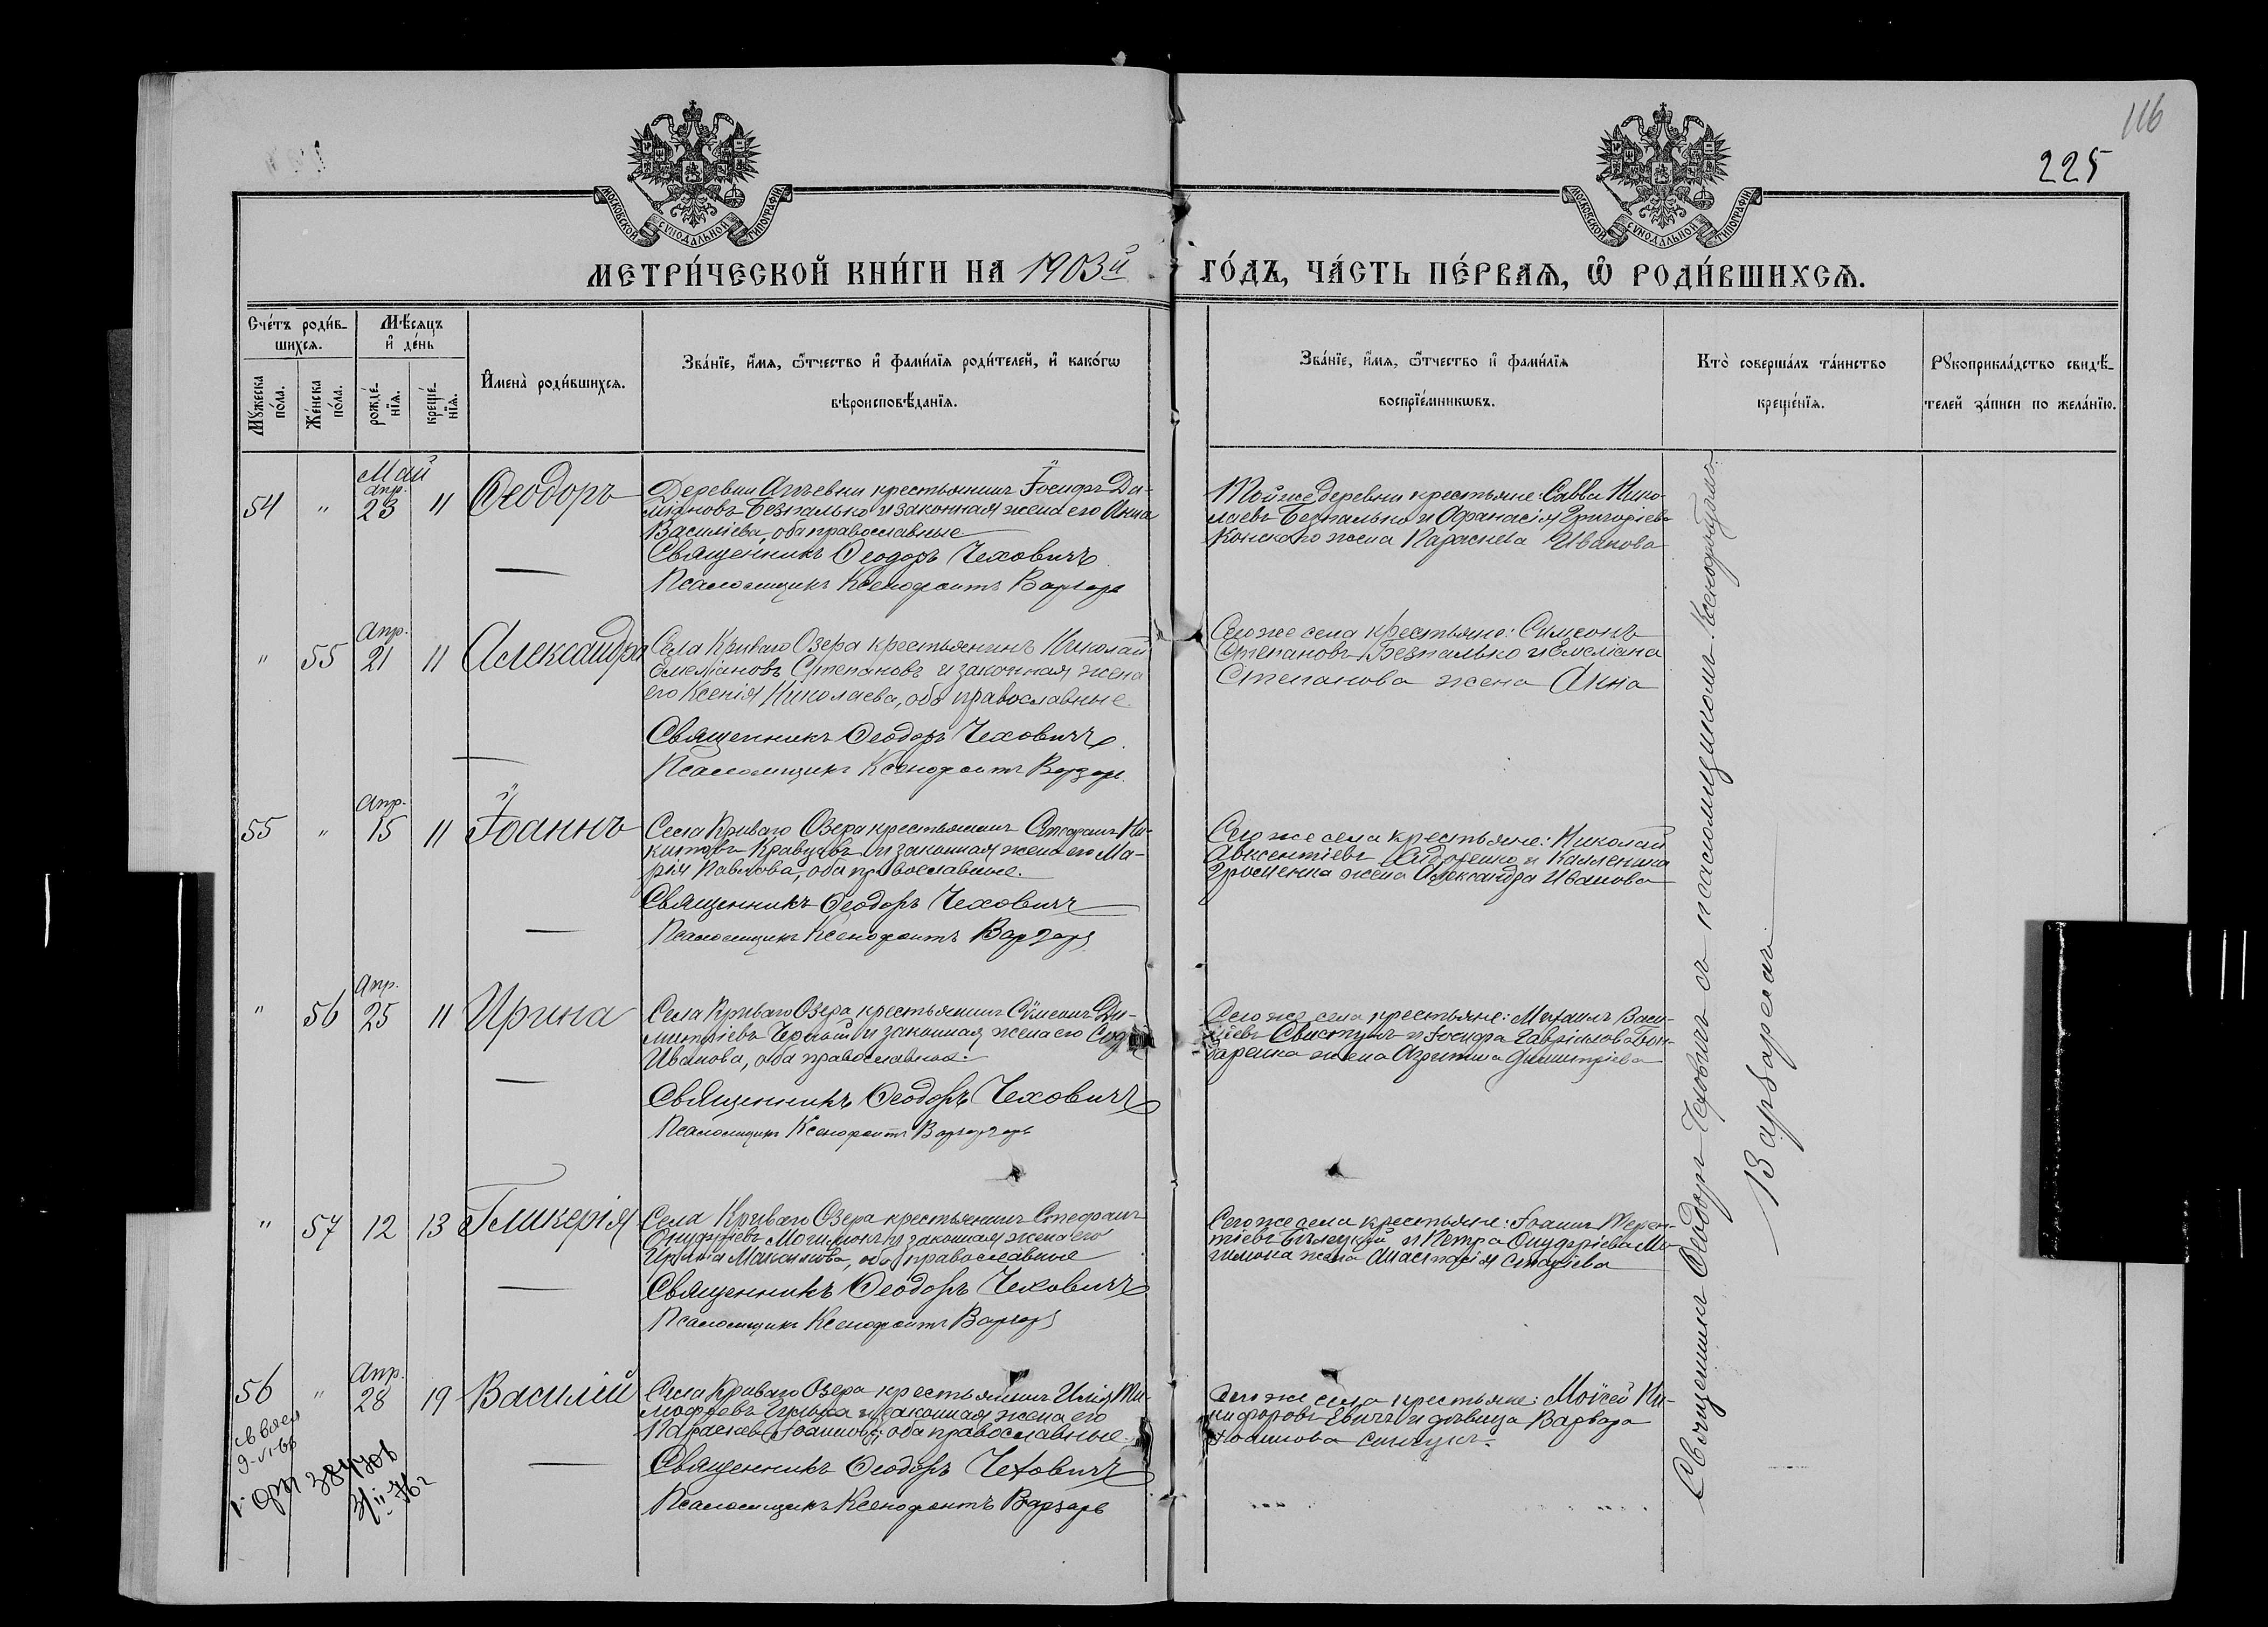 116
225
МОСКОВСКОЙ СУНОДАЛЬНОЙ ТИПОГРАФИИ
МОСКОВСКОЙ СУНОДАЛЬНОЙ ТИПОГРАФИИ
МЕТРИ́ЧЕСКОЙ КНИ́ГИ НА 1903й ГО́ДЪ, ЧА́СТЬ ПЕ́РВАѦ, Ѽ РОДИ́ВШИХСѦ.
Сче́тъ роди́в-
шихсѧ.
Мѣ́сѧцъ
и҆ де́нь
Мꙋ́жеска
по́ла.
Же́нска
по́ла.
рожде́-
нїѧ.
креще́-
нїѧ.
И҆мена̀ роди́вшихсѧ.
Зва́нїе, и҆́мѧ, ѻ҆́тчество и҆ фами́лїѧ роди́телей, и҆ како́гѡ
вѣроисповѣ́данїѧ.
Зва́нїе, и҆́мѧ, ѻ҆́тчество и҆ фами́лїѧ
воспрїе́мникѡвъ.
Кто̀ соверша́лъ та́инство
креще́нїѧ.
Рꙋкоприкла́дство свидѣ́-
телей за́писи по жела́нїю.
Май
Апр.
54 " 23 11 Ѳеодоръ
Деревни крестьянинъ Іосифъ Да-
міановъ Безпалько и законная жена его Анна
Василіева, оба православные
Священникъ Ѳеодоръ Чеховичъ
Псаломщикъ Ксенофонтъ Варзарь
Той же деревни крестьяне: Савва Нико-
лаевъ Безпалько и Аѳанасія Григоріева
жена Параскева Иванова
Апр.
" 55 21 11 Александра
Села Криваго Озера крестьянинъ Николай
Емеліановъ Степановъ и законная жена
его Ксенія Николаева, оба православные.
Священникъ Ѳеодоръ Чеховичъ
Псаломщикъ Ксенофонтъ Варзарь
Сего же села крестьяне: Симеонъ
Степановъ Безпалько и Емеліана
Степанова жена Анна
Апр.
55 " 15 11 Іоаннъ
Села Криваго Озера крестьянинъ Стефанъ Ни-
китовъ Кравцовъ и законная жена его Ма-
рія Павлова, оба православные.
Священникъ Ѳеодоръ Чеховичъ
Псаломщикъ Ксенофонтъ Варзарь
Сего же села крестьяне: Николай
Авксентіевъ Сидоренко и Каллиника
жена Александра Иванова
Апр.
" 56 25 11 Ирина
Села Криваго Озера крестьянинъ Сѵмеонъ Ди-
митріевъ Черный и законная жена его
Иванова, оба православные.
Священникъ Ѳеодоръ Чеховичъ
Псаломщикъ Ксенофонтъ Варзарь
Сего же села крестьяне: Михаилъ Васи-
ліевъ Свистунъ и Іосифа Гавріилова Бон-
даренка жена Димитріева
" 57 12 13 Гликерія
Села Криваго Озера крестьянинъ Стефанъ
Онуфріевъ и законная жена его
Ирина Максимова, оба православные
Священникъ Ѳеодоръ Чеховичъ
Псаломщикъ Ксенофонтъ Варзарь
Сего же села крестьяне: Іоаннъ Терен-
тіевъ Бѣлецкій и Петра Онуфріева
жена Анастасія
Апр.
56 " 28 19 Василій
Села Криваго Озера крестьянинъ Илія Ти-
моѳеевъ и законная жена его
Параскева Іоаннова, оба православные.
Священникъ Ѳеодоръ Чеховичъ
Псаломщикъ Ксенофонтъ Варзарь
Сего же села крестьяне: Моѵсей Ни-
кифоровъ и дѣвица Варвара
Іоаннова
Священникъ Ѳеодоръ Чеховичъ съ псаломщикомъ Ксенофонтомъ
Варзаремъ